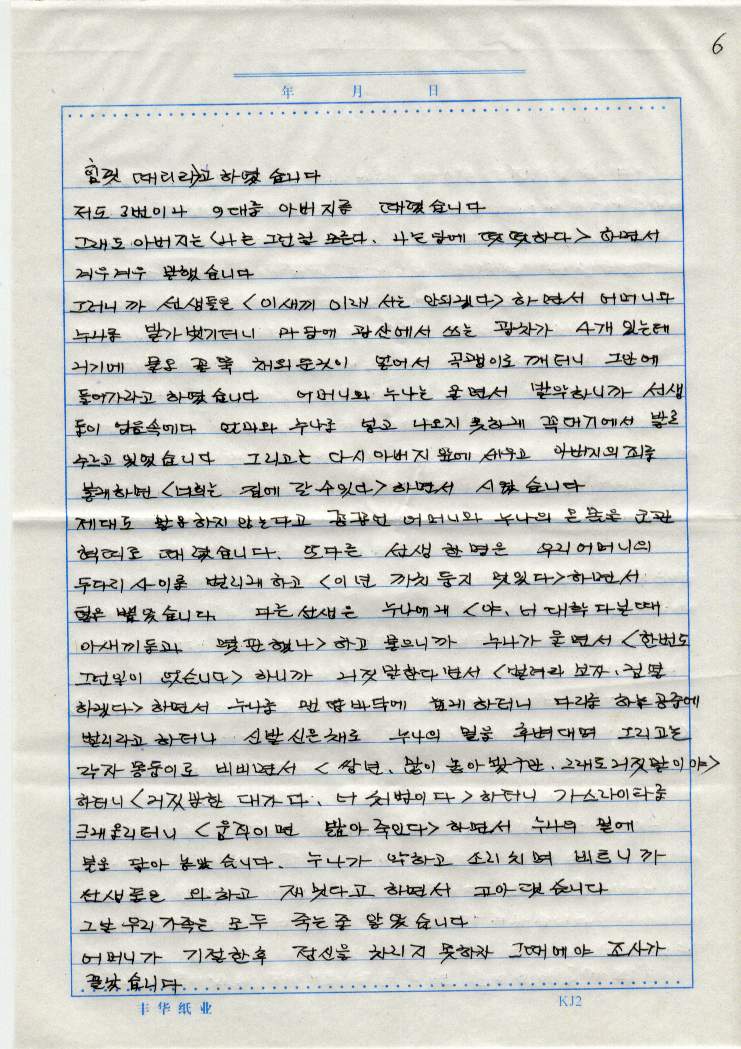 6
年 月 日
힘껏 때리라고 하였습니다
저도 3번이나 아버지를 때렸습니다
그래도 아버지는 <나는 그런걸 모른다. 나는 당에 떳떳하다> 하면서
겨우겨우 말했습니다
그러니까 선생들은 <이새끼 이래서는 안되겠다> 하면서 어머니와
누나를 발가벗기더니 마당에 광산에서 쓰는 광차가 4개 있는데
거기에 물을 꼴똑 채워둔것이 얼어서 곡괭이로 깨더니 그안에
들어가라고 하였습니다 어머니와 누나는 울면서 발악하니까 선생
들이 얼음속에다 엄마와 누나를 넣고 나오지 못하게 꼭대기에서 발로
누르고 있었습니다 그리고는 다시 아버지 앞에 세우고 아버지의 죄를
불게하면 <너희는 집에 갈수있다> 하면서 시켰습니다
제대로 하지 않는다고 어머니와 누나의 온몸을 군관
혁띠로 때렸습니다. 또다른 선생 한명은 우리어머니의
두다리 사이를 벌리게 하고 <이년 까치둥지 멋있다> 하면서
털을 뽑았습니다. 다른 선생은 누나에게 <야, 너 대학 다닐때
아새끼들과 몇판 했나> 하고 물으니까 누나가 울면서 <한번도
그런일이 없습니다> 하니까 거짓말한다면서 <벌려라 보자, 검열
하겠다> 하면서 누나를 맨땅바닥에 눕게 하더니 다리를 하늘공중에
벌리라고 하더니 신발신은채로 누나의 밑을 후벼대며 그리고는
각자 몽둥이로 비비면서 < 쌍년, 많이 놀아봤구만. 그래도 거짓말이야>
하더니 <거짓말한 대가다. 너 처벌이다> 하더니 가스라이타를
크게 올리더니 <움직이면 밟아 죽인다> 하면서 누나의 밑에
불을 달아 놓았습니다. 누나가 악하고 소리치며 비트니까
선생들은 와하고 재밋다고 하면서 고아댔습니다
그날 우리가족은 모두 죽는줄 알았습니다
어머니가 기절한후 정신을 차리지 못하자 그때에야 조사가
끝났습니다
丰华纸业 KJ2